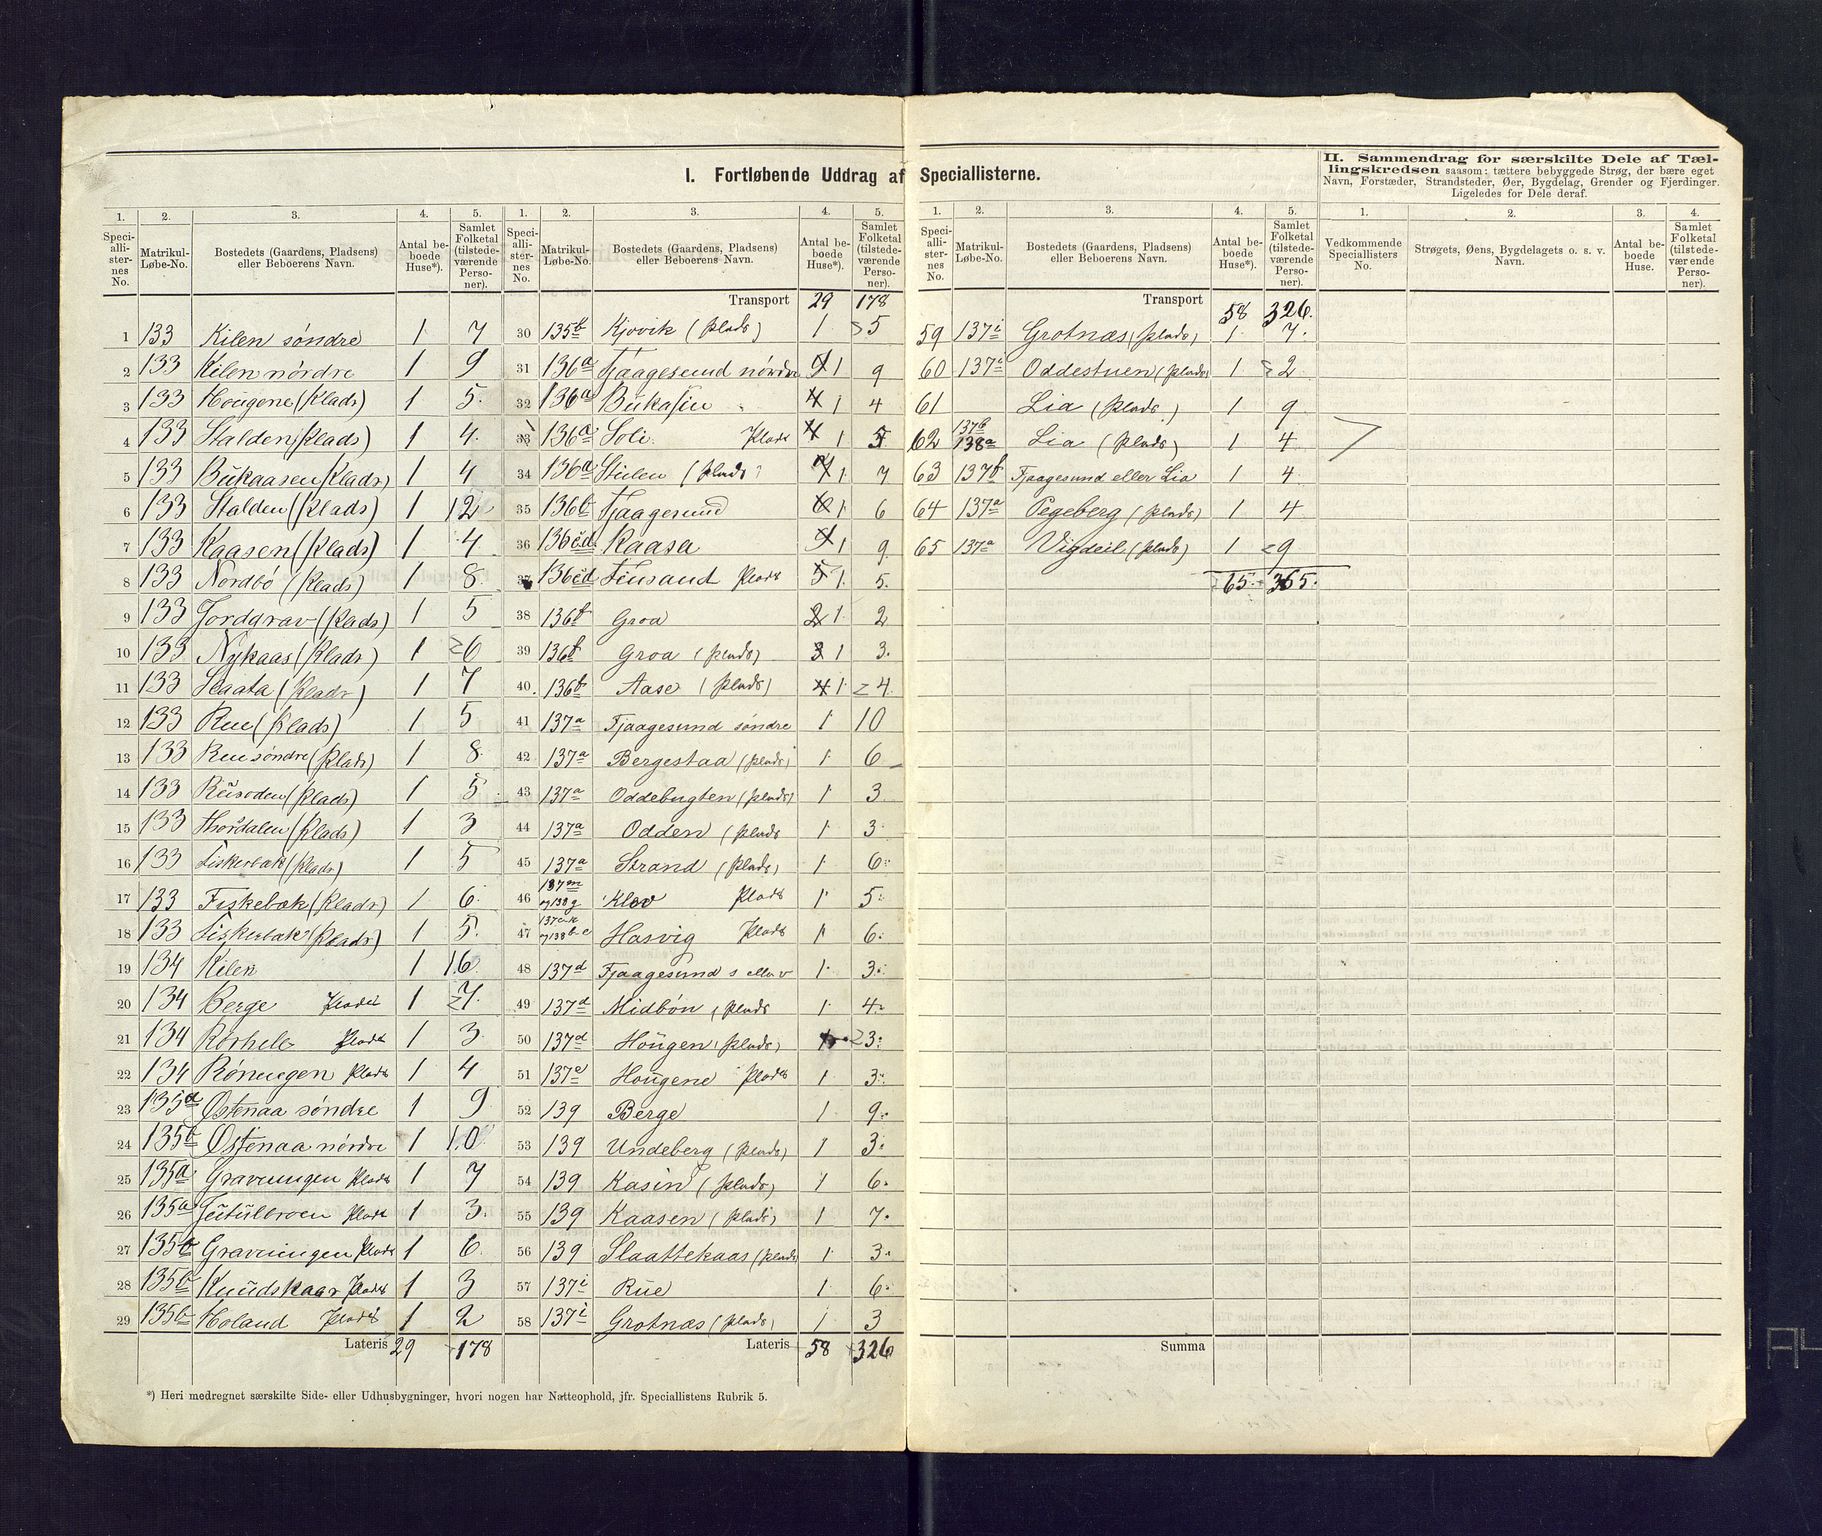 I. Fortløbende Uddrag af Speciallisterne.
II. Sammendrag for særskilte Dele af Tællingskredsen saasom: tættere bebyggede Strøg, der bære eget
Navn, Forstæder, Strandsteder, Øer, Bygdelag, Grender og Fjerdinger.
Ligeledes for Dele deraf.
1. 2. 3. 4. 5. 1. 2. 3. 4. 5. 1. 2. 3. 4. 5. 1. 2. 3. 4.
Speciallisternes No. Matrikul-Løbe-No. Bostedets (Gaardens, Pladsens) eller Beboerens Navn. Antal beboede Huse*). Samlet Folketal (tilstedeværende Personer).
Speciallisternes No. Matrikul-Løbe-No. Bostedets (Gaardens, Pladsens) eller Beboerens Navn. Antal beboede Huse*). Samlet Folketal (tilstedeværende Personer).
Speciallisternes No. Matrikul-Løbe-No. Bostedets (Gaardens, Pladsens) eller Beboerens Navn. Antal beboede Huse*). Samlet Folketal (tilstedeværende Personer).
Vedkommende Speciallisters No. Strøgets, Øens, Bygdelagets o. s. v. Navn. Antal beboede Huse. Samlet Folketal (tilstedeværende Personer).
1 133 Kilen søndre 1 7
2 133 Kilen nørdre 1 9
3 133 Hougene (Plads) 1 5
4 133 Stalden (Plads) 1 4
5 133 Bukaasen (Plads) 1 4
6 133 Stalden (Plads) 1 12
7 133 Kaasen (Plads) 1 4
8 133 Nordbø (Plads) 1 8
9 133 Jordgrav (Plads) 1 5
10 133 Nykaas (Plads) 1 6
11 133 Slaata (Plads) 1 7
12 133 Rue (Plads) 1 5
13 133 Rue søndre (Plads) 1 8
14 133 Rusoden (Plads) 1 5
15 133 Thordalen (Plads) 1 3
16 133 Fiskerbæk (Plads) 1 5
17 133 Fiskebæk (Plads) 1 6
18 133 Fiskerbæk (Plads) 1 5
19 134 Kilen 1 16
20 134 Berge Plads 1 7
21 134 Rørhele Plads 1 3
22 134 Røningen Plads 1 4
23 135a Østenaa søndre 1 9
24 135b Østenaa nørdre 1 10
25 135a Gravningen Plads 1 7
26 135a Jutulbroen Plads 1 3
27 135b Gravningen Plads 1 6
28 135b Knudskaar Plads 1 3
29 135b Holand Plads 1 2
Lateris 29 178
Transport 29 178
30 135b Kjovik (Plads) 1 5
31 136a Fjaagesund nørdre 1 9
32 136a Bukasin 1 4
33 136a Soli Plads 1 5
34 136a Stulen (Plads) 1 7
35 136b Fjaagesund 1 6
36 136cd Kaasa 1 9
37 136cd Finsand Plads 1 5
38 136f Groa 1 2
39 136f Groa (Plads) 1 3
40 136f Aase (Plads) 1 4
41 137a Fjaagesund søndre 1 10
42 137a Bergestaa (Plads) 1 6
43 137a Oddebugten (Plads) 1 3
44 137a Odden (Plads 1 3
45 137a Strand (Plads) 1 6
46 137m og 138g Klev Plads 1 5
47 Hasvig Plads 1 6
48 137d Fjaagesund s eller v 1 3
49 137d Midbøn (Plads 1 4
50 137d Hougen (Plads) 1 3
51 137e Hougene Plads 1 3
52 139 Berge 1 9
53 139 Undeberg (Plads) 1 3
54 139 Kasin (Plads) 1 6
55 139 Kaasen (Plads) 1 7
56 139 Slaattekaas (Plads) 1 3
57 137i Rue 1 6
58 137i Grotnæs (Plads) 1 3
Lateris 58 326
Transport 58 326
59 137i Grotnæs (Plads) 1 7
60 137i Oddestuen (Plads) 1 2
61 Lia (Plads) 1 9
62 137b 138a Lia (Plads) 1 4
63 137f Fjaagesund eller Lia 1 4
64 137a Pegeberg (Plads) 1 4
65 137a Vigdeil (Plads) 1 9
65 365
Summa
*) Heri medregnet særskilte Side- eller Udhusbygninger, hvori nogen har Natteophold, jfr. Speciallistens Rubrik 5.